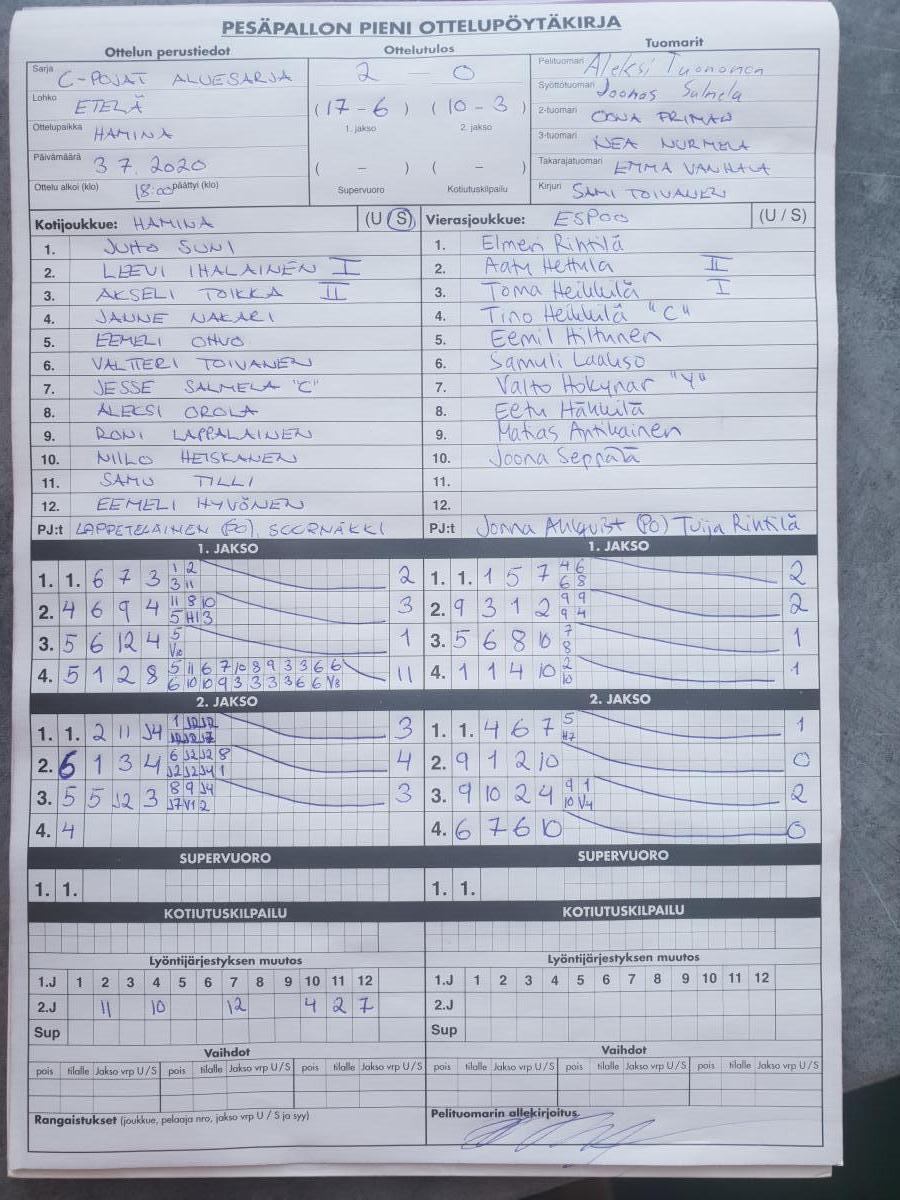 PESÄPALLON PIENI OTTELUPÖYTÄKIRJA
Ottelun perustiedot Ottelutulos Tuomarit
Sarja C-POJAT ALUESARJA 2 — 0 Pelituomari Aleksi Tuononen
Lohko ETELÄ (17-6) (10-3) Syöttötuomari Joonas Salmela
1. jakso 2. jakso
Ottelupaikka HAMINA 2-tuomari OONA PRIMAN
Päivämäärä 3 7. 2020 ( – ) ( – ) 3-tuomari NEA NURMELA
Takarajatuomari EMMA VANHALA
Ottelu alkoi (klo) 18:00 päättyi (klo) Supervuoro Kotiutuskilpailu Kirjuri SAMI TOIVANEN
Kotijoukkue: HAMINA (U S) Vierasjoukkue: ESPOO (U / S)
1. JUHO SUNI 1. Elmeri Rintilä
2. LEEVI IHALAINEN I 2. Aatu Hettula II
3. AKSELI TOIKKA II 3. Toma Heikkilä I
4. JANNE NAKARI 4. Tino Heikkilä "C"
5. EEMELI OHVO 5. Eemil Hiltunen
6. VALTTERI TOIVANEN 6. Samuli Laakso
7. JESSE SALMELA "C" 7. Valto Hokynar "Y"
8. ALEKSI OROLA 8. Eetu Häkkilä
9. RONI LAPPALAINEN 9. Matias Antikainen
10. NIILO HEISKANEN 10. Joona Seppälä
11. SAMU TILLI 11.
12. EEMELI HYVÖNEN 12.
PJ:t LAPPETELÄINEN (PO), SUURNÄKKI PJ:t Jonna Ahlqvist (PO) Tuija Rintilä
1. JAKSO 1. JAKSO
1. 1. 6 7 3 1 2 3 11 2 1. 1. 1 5 7 4 6 6 8 2
2. 4 6 9 4 11 8 10 5 H1 3 3 2. 9 3 1 2 9 9 9 4 2
3. 5 6 12 4 5 V10 1 3. 5 6 8 10 7 8 1
4. 5 1 2 8 5 11 6 7 10 8 9 3 3 6 6 6 10 10 9 3 3 3 3 6 6 V8 11 4. 1 1 4 10 2 10 1
2. JAKSO 2. JAKSO
1. 1. 2 11 J4 3 1. 1. 4 6 7 5 H7 1
2. 6 1 3 4 6 J2 J2 8 J2 J2 J4 1 4 2. 9 1 2 10 0
3. 5 5 J2 3 8 9 J4 J7 V1 2 3 3. 9 10 2 4 9 1 10 V4 2
4. 4 4. 6 7 6 10 0
SUPERVUORO SUPERVUORO
1. 1. 1. 1.
KOTIUTUSKILPAILU KOTIUTUSKILPAILU
Lyöntijärjestyksen muutos Lyöntijärjestyksen muutos
1.J 1 2 3 4 5 6 7 8 9 10 11 12 1.J 1 2 3 4 5 6 7 8 9 10 11 12
2.J 11 10 12 4 2 7 2.J
Sup Sup
Vaihdot Vaihdot
pois tilalle Jakso vrp U / S pois tilalle Jakso vrp U / S pois tilalle Jakso vrp U / S pois tilalle Jakso vrp U / S pois tilalle Jakso vrp U / S pois tilalle Jakso vrp U / S
Rangaistukset (joukkue, pelaaja nro, jakso vrp U / S ja syy) Pelituomarin allekirjoitus